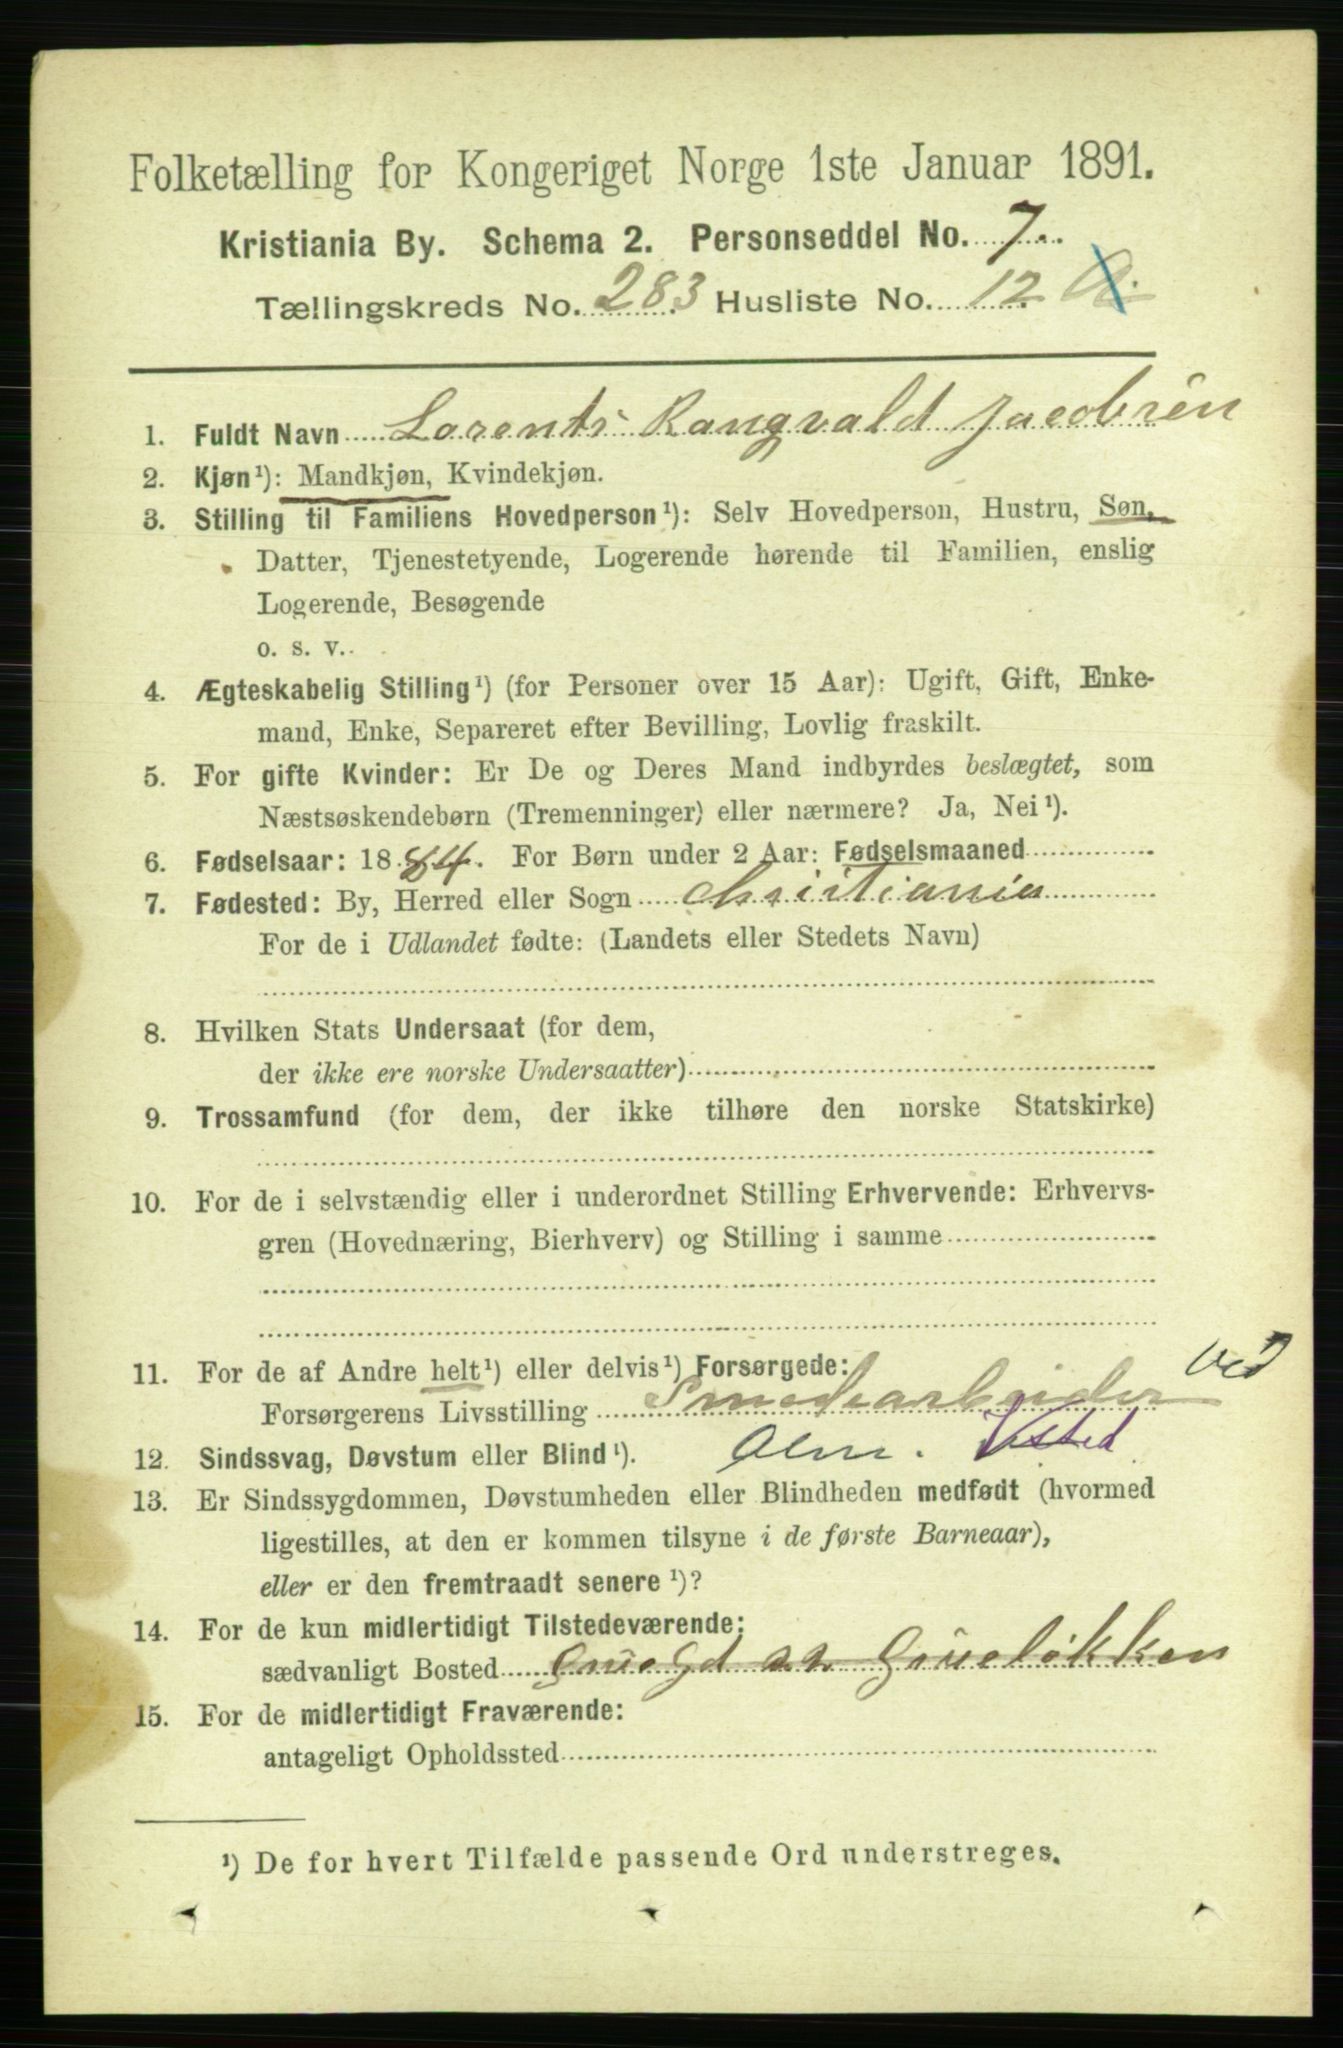 Folketælling for Kongeriget Norge 1ste Januar 1891.
Kristiania By. Schema 2. Personseddel No. 7.
Tællingskreds No. 283 Husliste No. 12
1. Fuldt Navn Lorents Rangvald Jacobsen
2. Kjøn¹): Mandkjøn, Kvindekjøn.
3. Stilling til Familiens Hovedperson¹): Selv Hovedperson, Hustru, Søn,
Datter, Tjenestetyende, Logerende hørende til Familien, enslig
Logerende, Besøgende
o. s. v.
4. Ægteskabelig Stilling¹) (for Personer over 15 Aar): Ugift, Gift, Enke-
mand, Enke, Separeret efter Bevilling, Lovlig fraskilt.
5. For gifte Kvinder: Er De og Deres Mand indbyrdes beslægtet, som
Næstsøskendebørn (Tremenninger) eller nærmere? Ja, Nei¹).
6. Fødselsaar: 1884. For Børn under 2 Aar: Fødselsmaaned
7. Fødested: By, Herred eller Sogn Christiania
For de i Udlandet fødte: (Landets eller Stedets Navn)
8. Hvilken Stats Undersaat (for dem,
der ikke ere norske Undersaatter)
9. Trossamfund (for dem, der ikke tilhøre den norske Statskirke)
10. For de i selvstændig eller i underordnet Stilling Erhvervende: Erhvervs-
gren (Hovednæring, Bierhverv) og Stilling i samme
11. For de af Andre helt¹) eller delvis¹) Forsørgede:
Forsørgerens Livsstilling Smedearbeider ved
12. Sindssvag, Døvstum eller Blind¹).
13. Er Sindssygdommen, Døvstumheden eller Blindheden medfødt (hvormed
ligestilles, at den er kommen tilsyne i de første Barneaar),
eller er den fremtraadt senere¹)?
14. For de kun midlertidigt Tilstedeværende:
sædvanligt Bosted
15. For de midlertidigt Fraværende:
antageligt Opholdssted
¹) De for hvert Tilfælde passende Ord understreges.